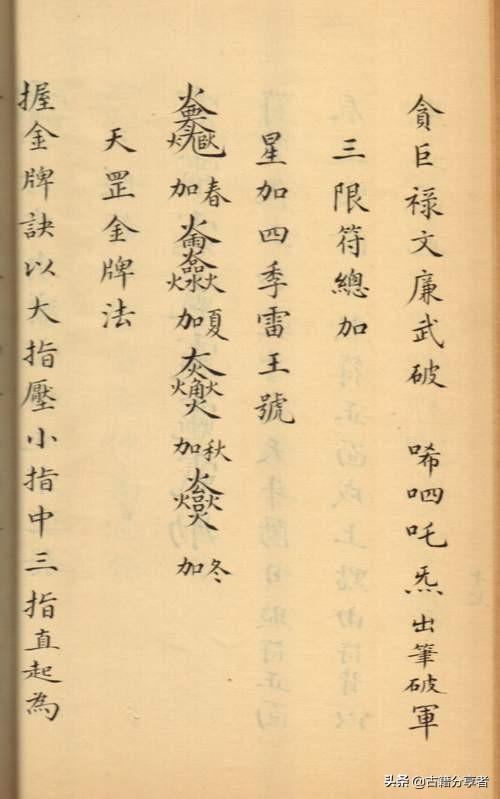 貪巨祿文廉武破　唏呬吒炁出筆破軍
三限符總加
星加四季雷王號
春加　夏加　秋加　冬加
天罡金牌法
握金牌訣以大指壓小指中三指直起為
头条 @古籍分享者